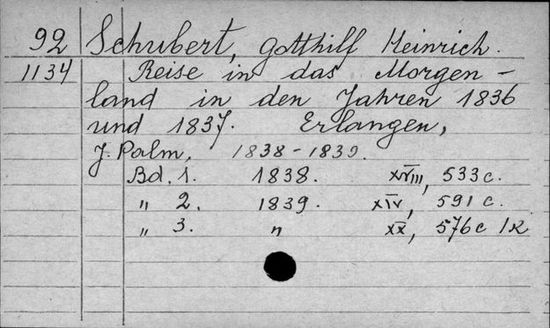 92 Schubert, Gotthilf Heinrich.
1134 Reise in das Morgen-
land in den Jahren 1836
und 1837. Erlangen,
J. Palm, 1838-1839.
Bd. 1. 1838. XVIII, 533 c.
„ 2. 1839. XIV, 591 c.
„ 3. " XX, 576 c 1 к